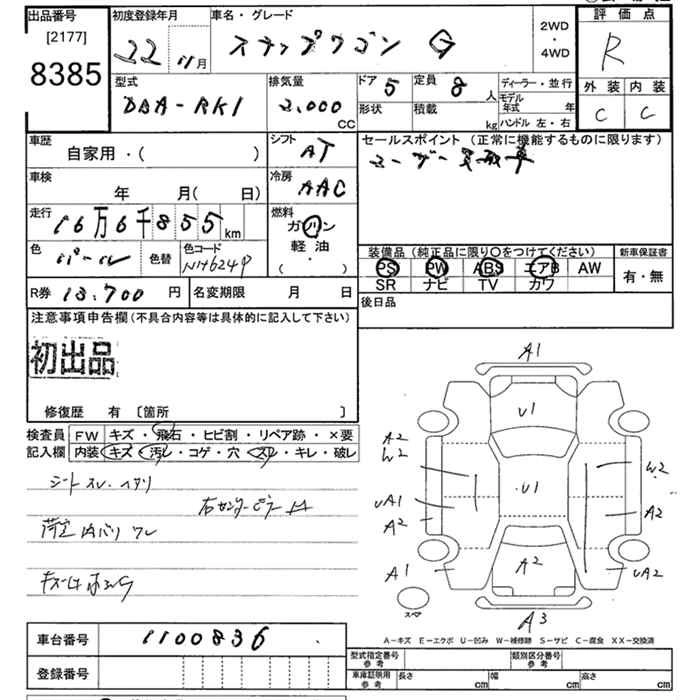 出品番号
[2177]
8385
初度登録年月
22 11月
車名・グレード
ステップワゴン G
2WD
・
4WD
評価点
R
外装 内装
C C
型式
DBA-RK1
排気量
2,000
CC
ドア 5
定員 8 人
形状
積載 kg
ディーラー・並行
モデル年式 年
ハンドル 左・右
車歴
自家用・( )
シフト
AT
セールスポイント (正常に機能するものに限ります)
ユーザー買取車
車検
年 月( 日)
冷房
AAC
走行
16万6千855 km
燃料
ガソリン
軽油
( ・ )
色
パール
色替
色コード
NH624P
装備品 (純正品に限り〇をつけてください)
PS PW ABS エアB AW
SR ナビ TV カワ
新車保証書
有・無
R券 13,700 円
名変期限 月 日
後日品
注意事項申告欄(不具合内容等は具体的に記入して下さい)
初出品
修復歴 有 〔箇所 〕
検査員記入欄
FW キズ・飛石・ヒビ割・リペア跡・×要
内装 キズ・汚レ・コゲ・穴・スレ・キレ・破レ
シート スレ ヘタリ
右センターピラー
荷室 内バリ ワレ
A1
U1
A2
W2
U1
W2
UA1
A2
A2
A1
A2
UA2
スペア
A3
A-キズ E-エクボ U-凹み W-補修跡 S-サビ C-腐食 XX-交換済
車台番号 1100836
登録番号
型式指定番号
参考
類別区分番号
参考
車庫証明用
参考
長さ cm
幅 cm
高さ cm